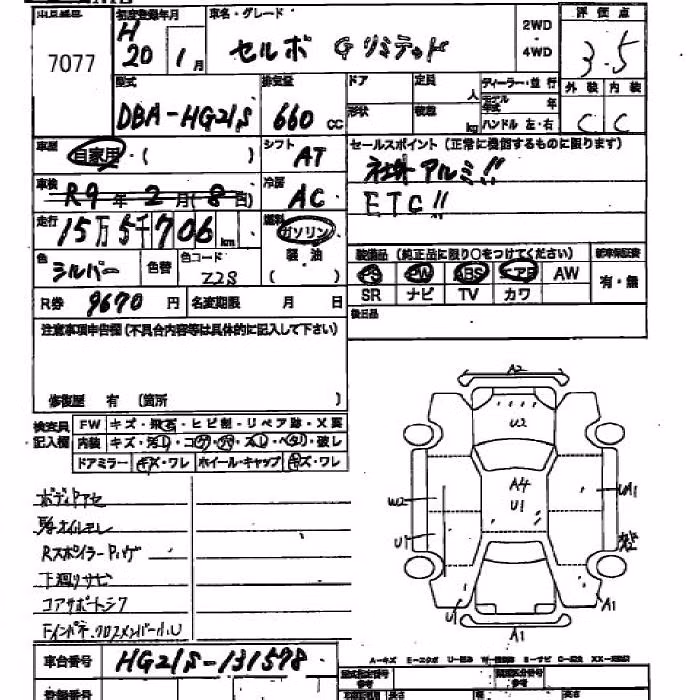 初度登録年月
車名・グレード
評価点
7077
H
20 1月
セルボ Gリミテッド
2WD
4WD
3.5
型式
排気量
ドア
定員
人
ディーラー・並行
外装 内装
DBA-HG21S
660 CC
形状
積載
kg
モデル年式 年
ハンドル 左・右
C C
車歴
自家用・( )
シフト
AT
セールスポイント(正常に機能するものに限ります)
社外アルミ!!
車検
R9年2月(8日)
冷房
AC
ETC!!
走行
15万5千706km
燃料
ガソリン
軽油
( )
装備品 (純正品に限り○をつけてください)
新車保証書
色
シルバー
色替
色コード
Z2S
PS PW ABS エアB AW
SR ナビ TV カワ
有・無
R券 9670円
名変期限 月 日
後日品
注意事項申告欄(不具合内容等は具体的に記入して下さい)
修復歴 有 (箇所 )
検査員
記入欄
FW キズ・飛石・ヒビ割・リペア跡・X要
内装 キズ・汚レ・コゲ・穴・スレ・ベタ・破レ
ドアミラー キズ・ワレ ホイール・キャップ キズ・ワレ
ボディアセ
下廻りサビ
コアサポートシワ
A2
U2
A4
U1
W2
U1
UA1
U1
A1
A1
車台番号
HG21S-131598
A-キズ E-エクボ U-凹み